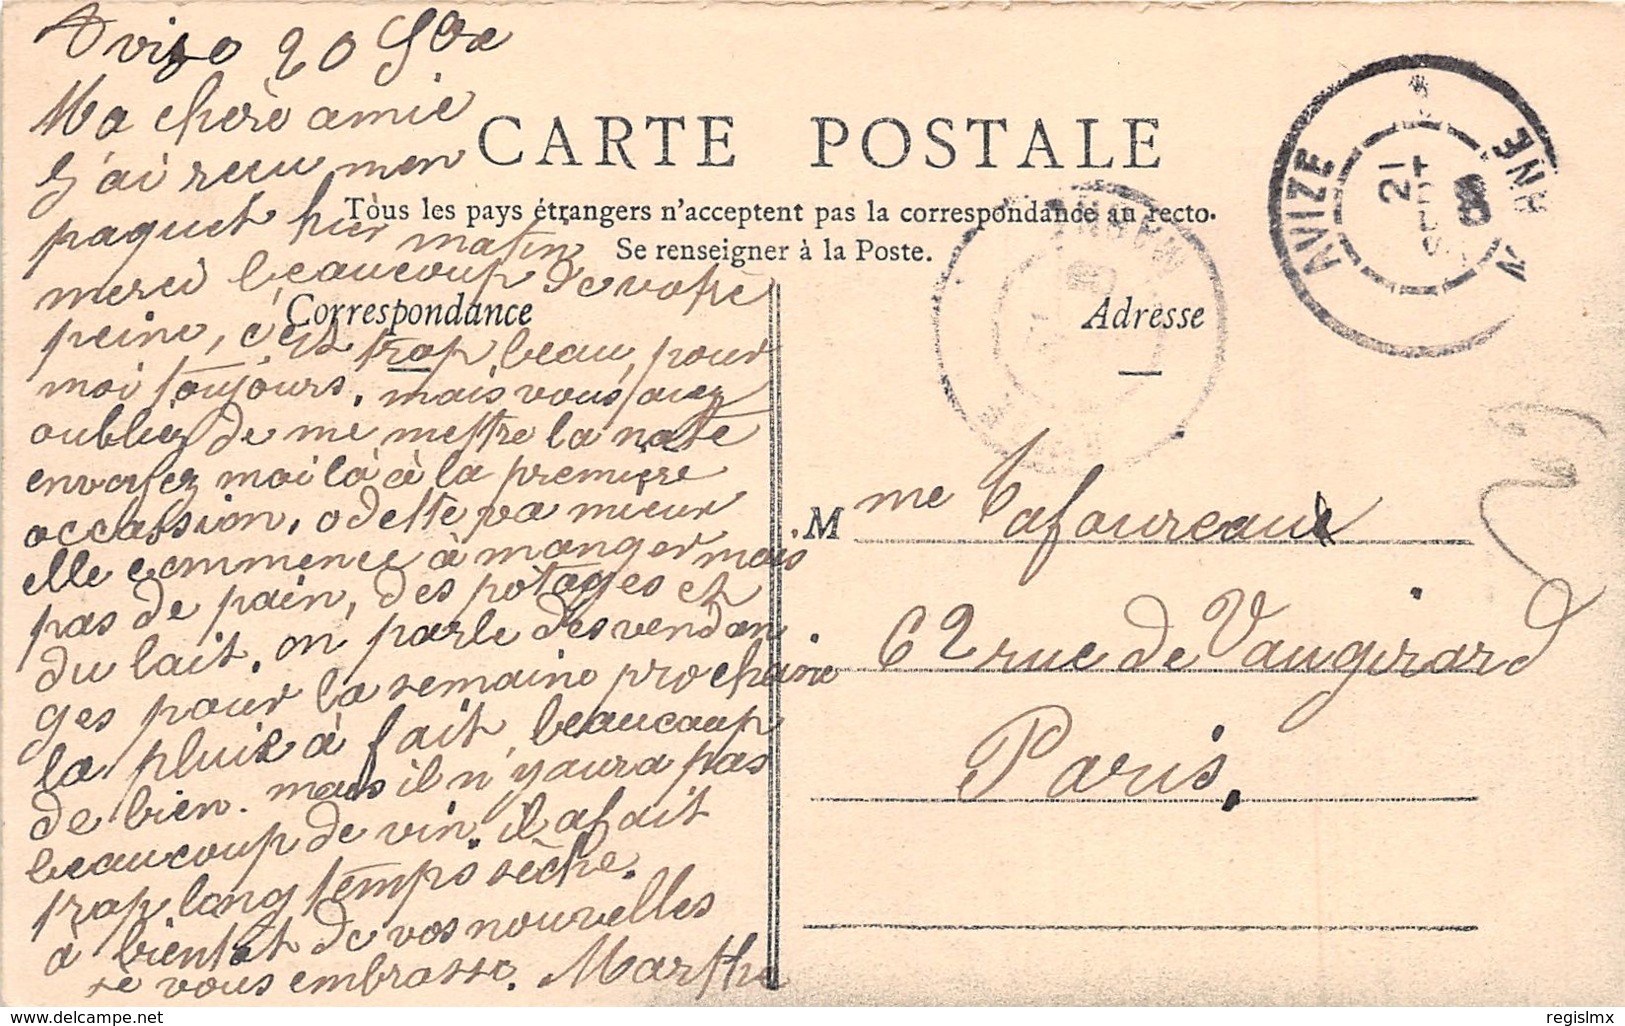 Avize 20 Sbre
Ma chère amie
J'ai recu mon
paquet hier matin
merci beaucoup de votre
peine, c'est trop beau, pour
moi toujours. mais vous avez
oubliez de me mettre la note
envoyez moi là à la première
occassion. odette va mieux
elle commence à manger mais
pas de pain, des potages et
du lait. on parle des vendan
ges pour la semaine prochaine
la pluie à fait beaucoup
de bien. mais il n'y aura pas
beaucoup de vin. il a fait
trop long temps sèche.
à bientot de vos nouvelles
je vous embrasse. Marthe
CARTE POSTALE
Tous les pays étrangers n'acceptent pas la correspondance au recto.
Se renseigner à la Poste.
Correspondance
Adresse
AVIZE
21
SEPT
08
MARNE
MARNE
Mme Lafoureaux
62 rue de Vaugirard
Paris.
www.delcampe.net
regislmx